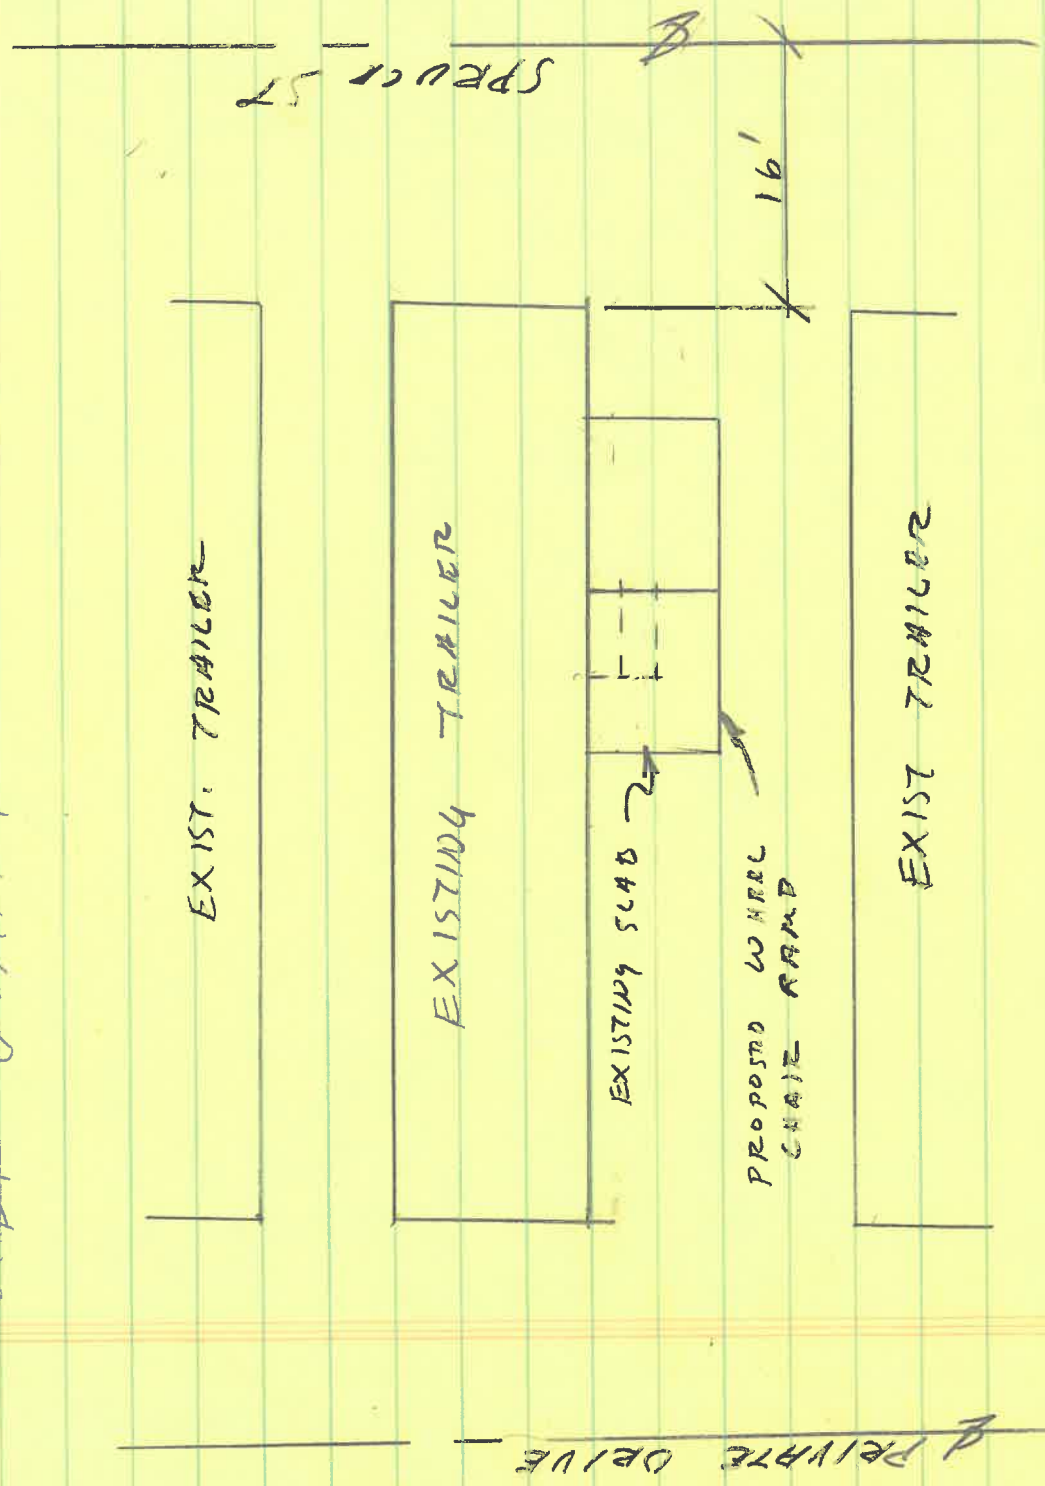 SPRUCE ST
16'
EXIST. TRAILER
EXISTING TRAILER
EXISTING SLAB
PROPOSED WHEEL
CHAIR RAMP
EXIST TRAILER
PRIVATE DRIVE